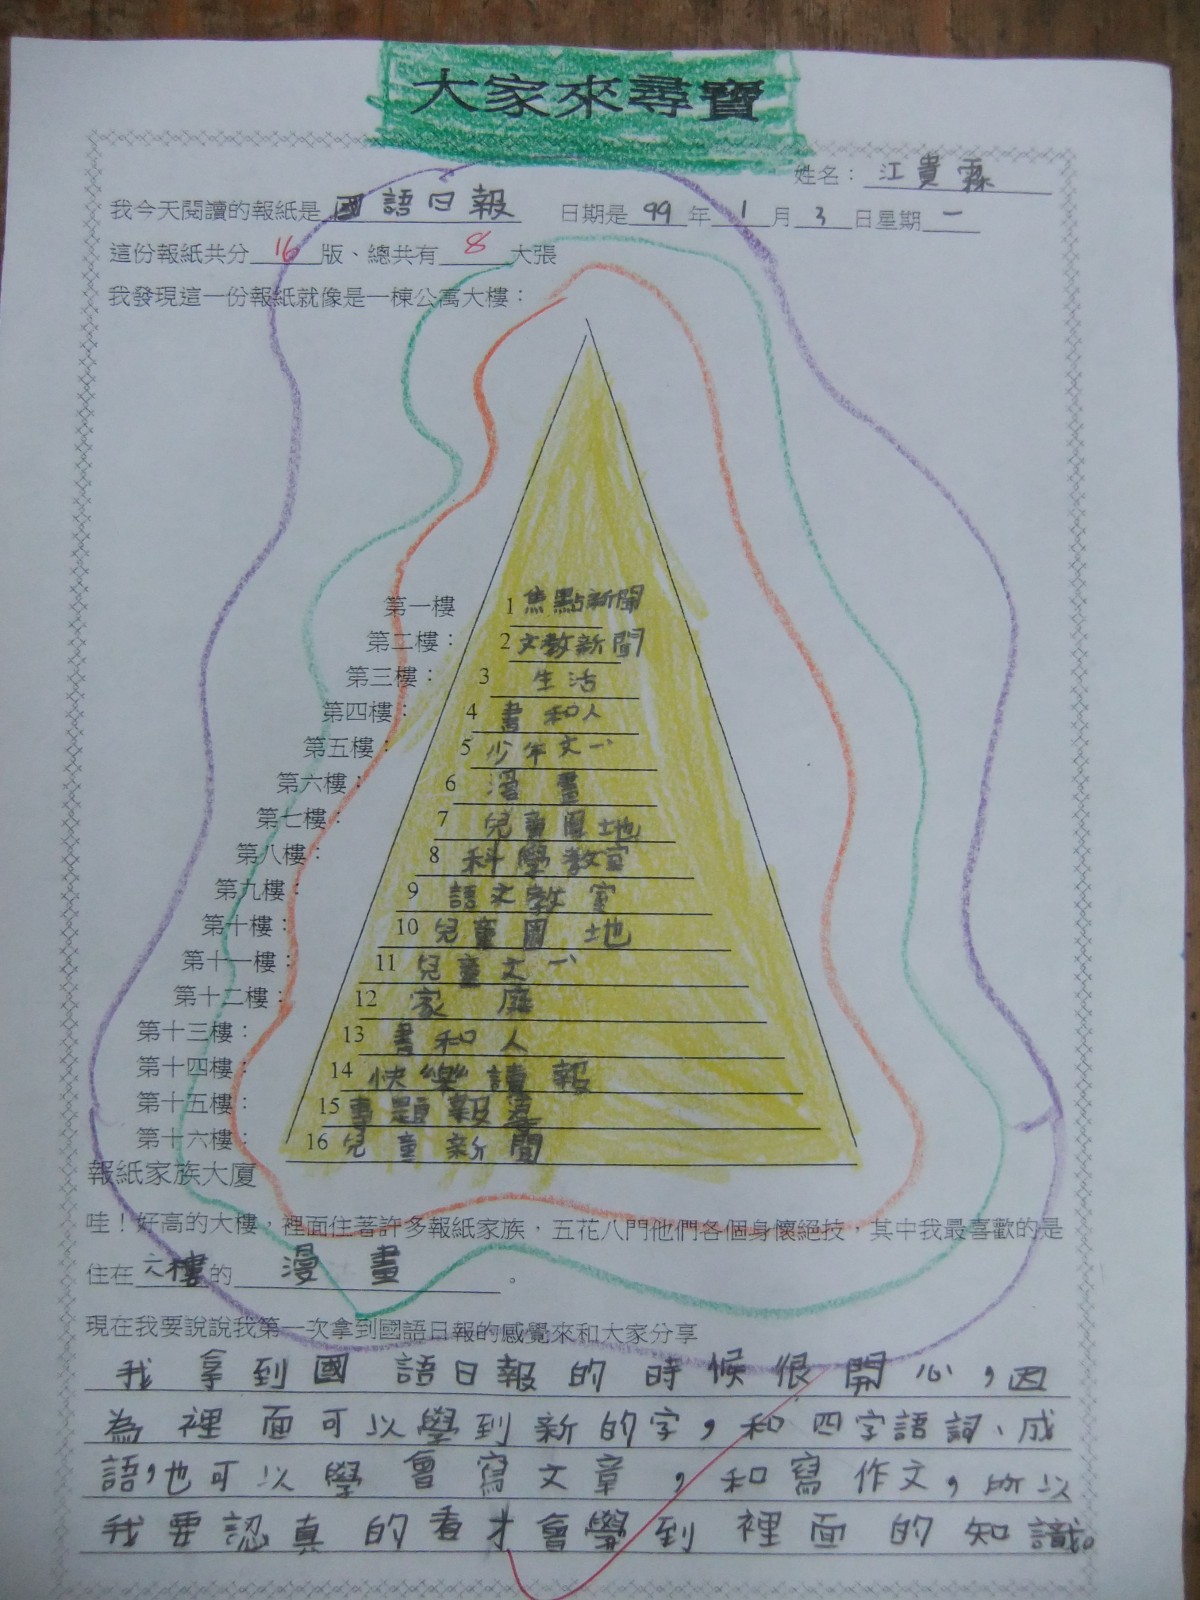 大家來尋寶
姓名：江貴霖
我今天閱讀的報紙是國語日報 日期是99年1月3日星期一
這份報紙共分16版、總共有8大張
我發現這一份報紙就像是一棟公寓大樓：
第一樓 1 焦點新聞
第二樓： 2 文教新聞
第三樓： 3 生活
第四樓： 4 書和人
第五樓： 5 少年文
第六樓： 6 漫畫
第七樓： 7 兒童園地
第八樓： 8 科學教室
第九樓： 9 語文教室
第十樓： 10 兒童園地
第十一樓： 11 兒童文
第十二樓： 12 家庭
第十三樓： 13 書和人
第十四樓： 14 快樂讀報
第十五樓： 15 專題報導
第十六樓： 16 兒童新聞
報紙家族大廈
哇！好高的大樓，裡面住著許多報紙家族，五花八門他們各個身懷絕技，其中我最喜歡的是
住在六樓的漫畫。
現在我要說說我第一次拿到國語日報的感覺來和大家分享
我拿到國語日報的時候很開心，因
為裡面可以學到新的字，和四字語詞、成
語，也可以學會寫文章，和寫作文，所以
我要認真的看才會學到裡面的知識。